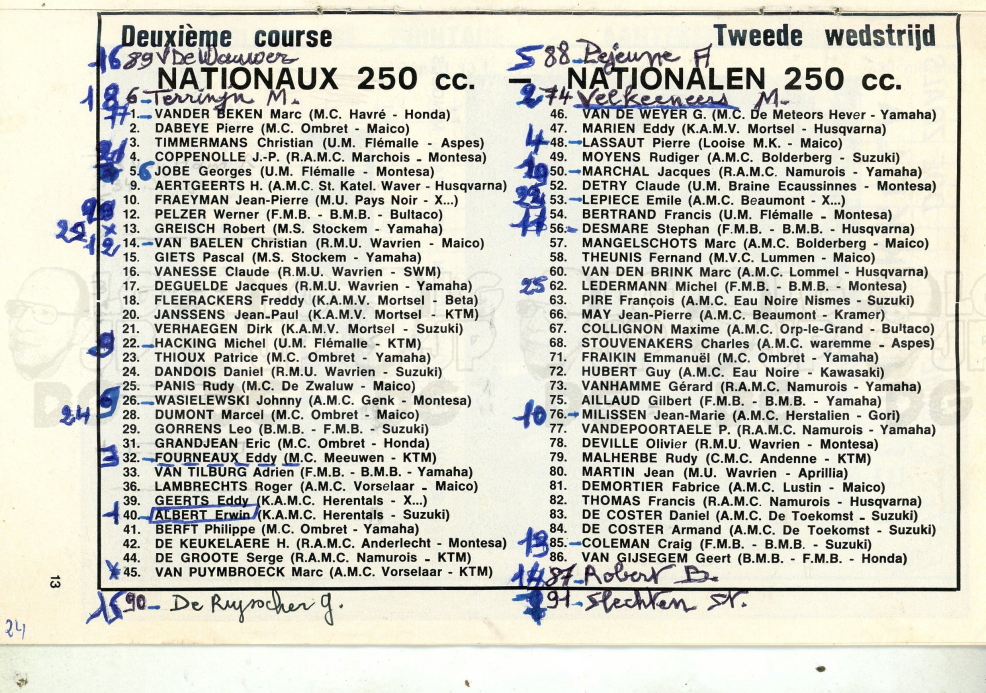 Deuxième course
Tweede wedstrijd
16 89 V De Wauwer
5 88 Dejeune A
NATIONAUX 250 cc. — NATIONALEN 250 cc.
18 6 - Terrinjn M.
2 74 Velkeneers M.
1. VANDER BEKEN Marc (M.C. Havré - Honda)
2. DABEYE Pierre (M.C. Ombret - Maico)
3. TIMMERMANS Christian (U.M. Flémalle - Aspes)
4. COPPENOLLE J.-P. (R.A.M.C. Marchois - Montesa)
5. 6 JOBE Georges (U.M. Flémalle - Montesa)
9. AERTGEERTS H. (A.M.C. St. Katel. Waver - Husqvarna)
10. FRAEYMAN Jean-Pierre (M.U. Pays Noir - X...)
12. PELZER Werner (F.M.B. - B.M.B. - Bultaco)
13. GREISCH Robert (M.S. Stockem - Yamaha)
12 14. VAN BAELEN Christian (R.M.U. Wavrien - Maico)
15. GIETS Pascal (M.S. Stockem - Yamaha)
16. VANESSE Claude (R.M.U. Wavrien - SWM)
17. DEGUELDE Jacques (R.M.U. Wavrien - Yamaha)
18. FLEERACKERS Freddy (K.A.M.V. Mortsel - Beta)
20. JANSSENS Jean-Paul (K.A.M.V. Mortsel - KTM)
21. VERHAEGEN Dirk (K.A.M.V. Mortsel - Suzuki)
22. HACKING Michel (U.M. Flémalle - KTM)
23. THIOUX Patrice (M.C. Ombret - Yamaha)
24. DANDOIS Daniel (R.M.U. Wavrien - Suzuki)
25. PANIS Rudy (M.C. De Zwaluw - Maico)
26. WASIELEWSKI Johnny (A.M.C. Genk - Montesa)
24 28. DUMONT Marcel (M.C. Ombret - Maico)
29. GORRENS Leo (B.M.B. - F.M.B. - Suzuki)
31. GRANDJEAN Eric (M.C. Ombret - Honda)
3 32. FOURNEAUX Eddy (M.C. Meeuwen - KTM)
33. VAN TILBURG Adrien (F.M.B. - B.M.B. - Yamaha)
36. LAMBRECHTS Roger (A.M.C. Vorselaar - Maico)
39. GEERTS Eddy (K.A.M.C. Herentals - X...)
1 40. ALBERT Erwin (K.A.M.C. Herentals - Suzuki)
41. BERFT Philippe (M.C. Ombret - Yamaha)
42. DE KEUKELAERE H. (R.A.M.C. Anderlecht - Montesa)
44. DE GROOTE Serge (R.A.M.C. Namurois - KTM)
45. VAN PUYMBROECK Marc (A.M.C. Vorselaar - KTM)
15 90 - De Ruysscher g.
46. VAN DE WEYER G. (M.C. De Meteors Hever - Yamaha)
47. MARIEN Eddy (K.A.M.V. Mortsel - Husqvarna)
4 48. LASSAUT Pierre (Looise M.K. - Maico)
49. MOYENS Rudiger (A.M.C. Bolderberg - Suzuki)
19 50. MARCHAL Jacques (R.A.M.C. Namurois - Yamaha)
52. DETRY Claude (U.M. Braine Ecaussinnes - Montesa)
53. LEPIECE Emile (A.M.C. Beaumont - X...)
54. BERTRAND Francis (U.M. Flémalle - Montesa)
11 56. DESMARE Stephan (F.M.B. - B.M.B. - Husqvarna)
57. MANGELSCHOTS Marc (A.M.C. Bolderberg - Maico)
58. THEUNIS Fernand (M.V.C. Lummen - Maico)
60. VAN DEN BRINK Marc (A.M.C. Lommel - Husqvarna)
25 62. LEDERMANN Michel (F.M.B. - B.M.B. - Montesa)
63. PIRE François (A.M.C. Eau Noire Nismes - Suzuki)
66. MAY Jean-Pierre (A.M.C. Beaumont - Kramer)
67. COLLIGNON Maxime (A.M.C. Orp-le-Grand - Bultaco)
68. STOUVENAKERS Charles (A.M.C. waremme - Aspes)
71. FRAIKIN Emmanuël (M.C. Ombret - Yamaha)
72. HUBERT Guy (A.M.C. Eau Noire - Kawasaki)
73. VANHAMME Gérard (R.A.M.C. Namurois - Yamaha)
75. AILLAUD Gilbert (F.M.B. - B.M.B. - Yamaha)
10 76. MILISSEN Jean-Marie (A.M.C. Herstalien - Gori)
77. VANDEPOORTAELE P. (R.A.M.C. Namurois - Yamaha)
78. DEVILLE Olivier (R.M.U. Wavrien - Montesa)
79. MALHERBE Rudy (C.M.C. Andenne - KTM)
80. MARTIN Jean (M.U. Wavrien - Aprillia)
81. DEMORTIER Fabrice (A.M.C. Lustin - Maico)
82. THOMAS Francis (R.A.M.C. Namurois - Husqvarna)
83. DE COSTER Daniel (A.M.C. De Toekomst - Suzuki)
84. DE COSTER Armand (A.M.C. De Toekomst - Suzuki)
13 85. COLEMAN Craig (F.M.B. - B.M.B. - Suzuki)
86. VAN GIJSEGEM Geert (B.M.B. - F.M.B. - Honda)
14 87 - Robert B.
91 - Slechten St.
13
24